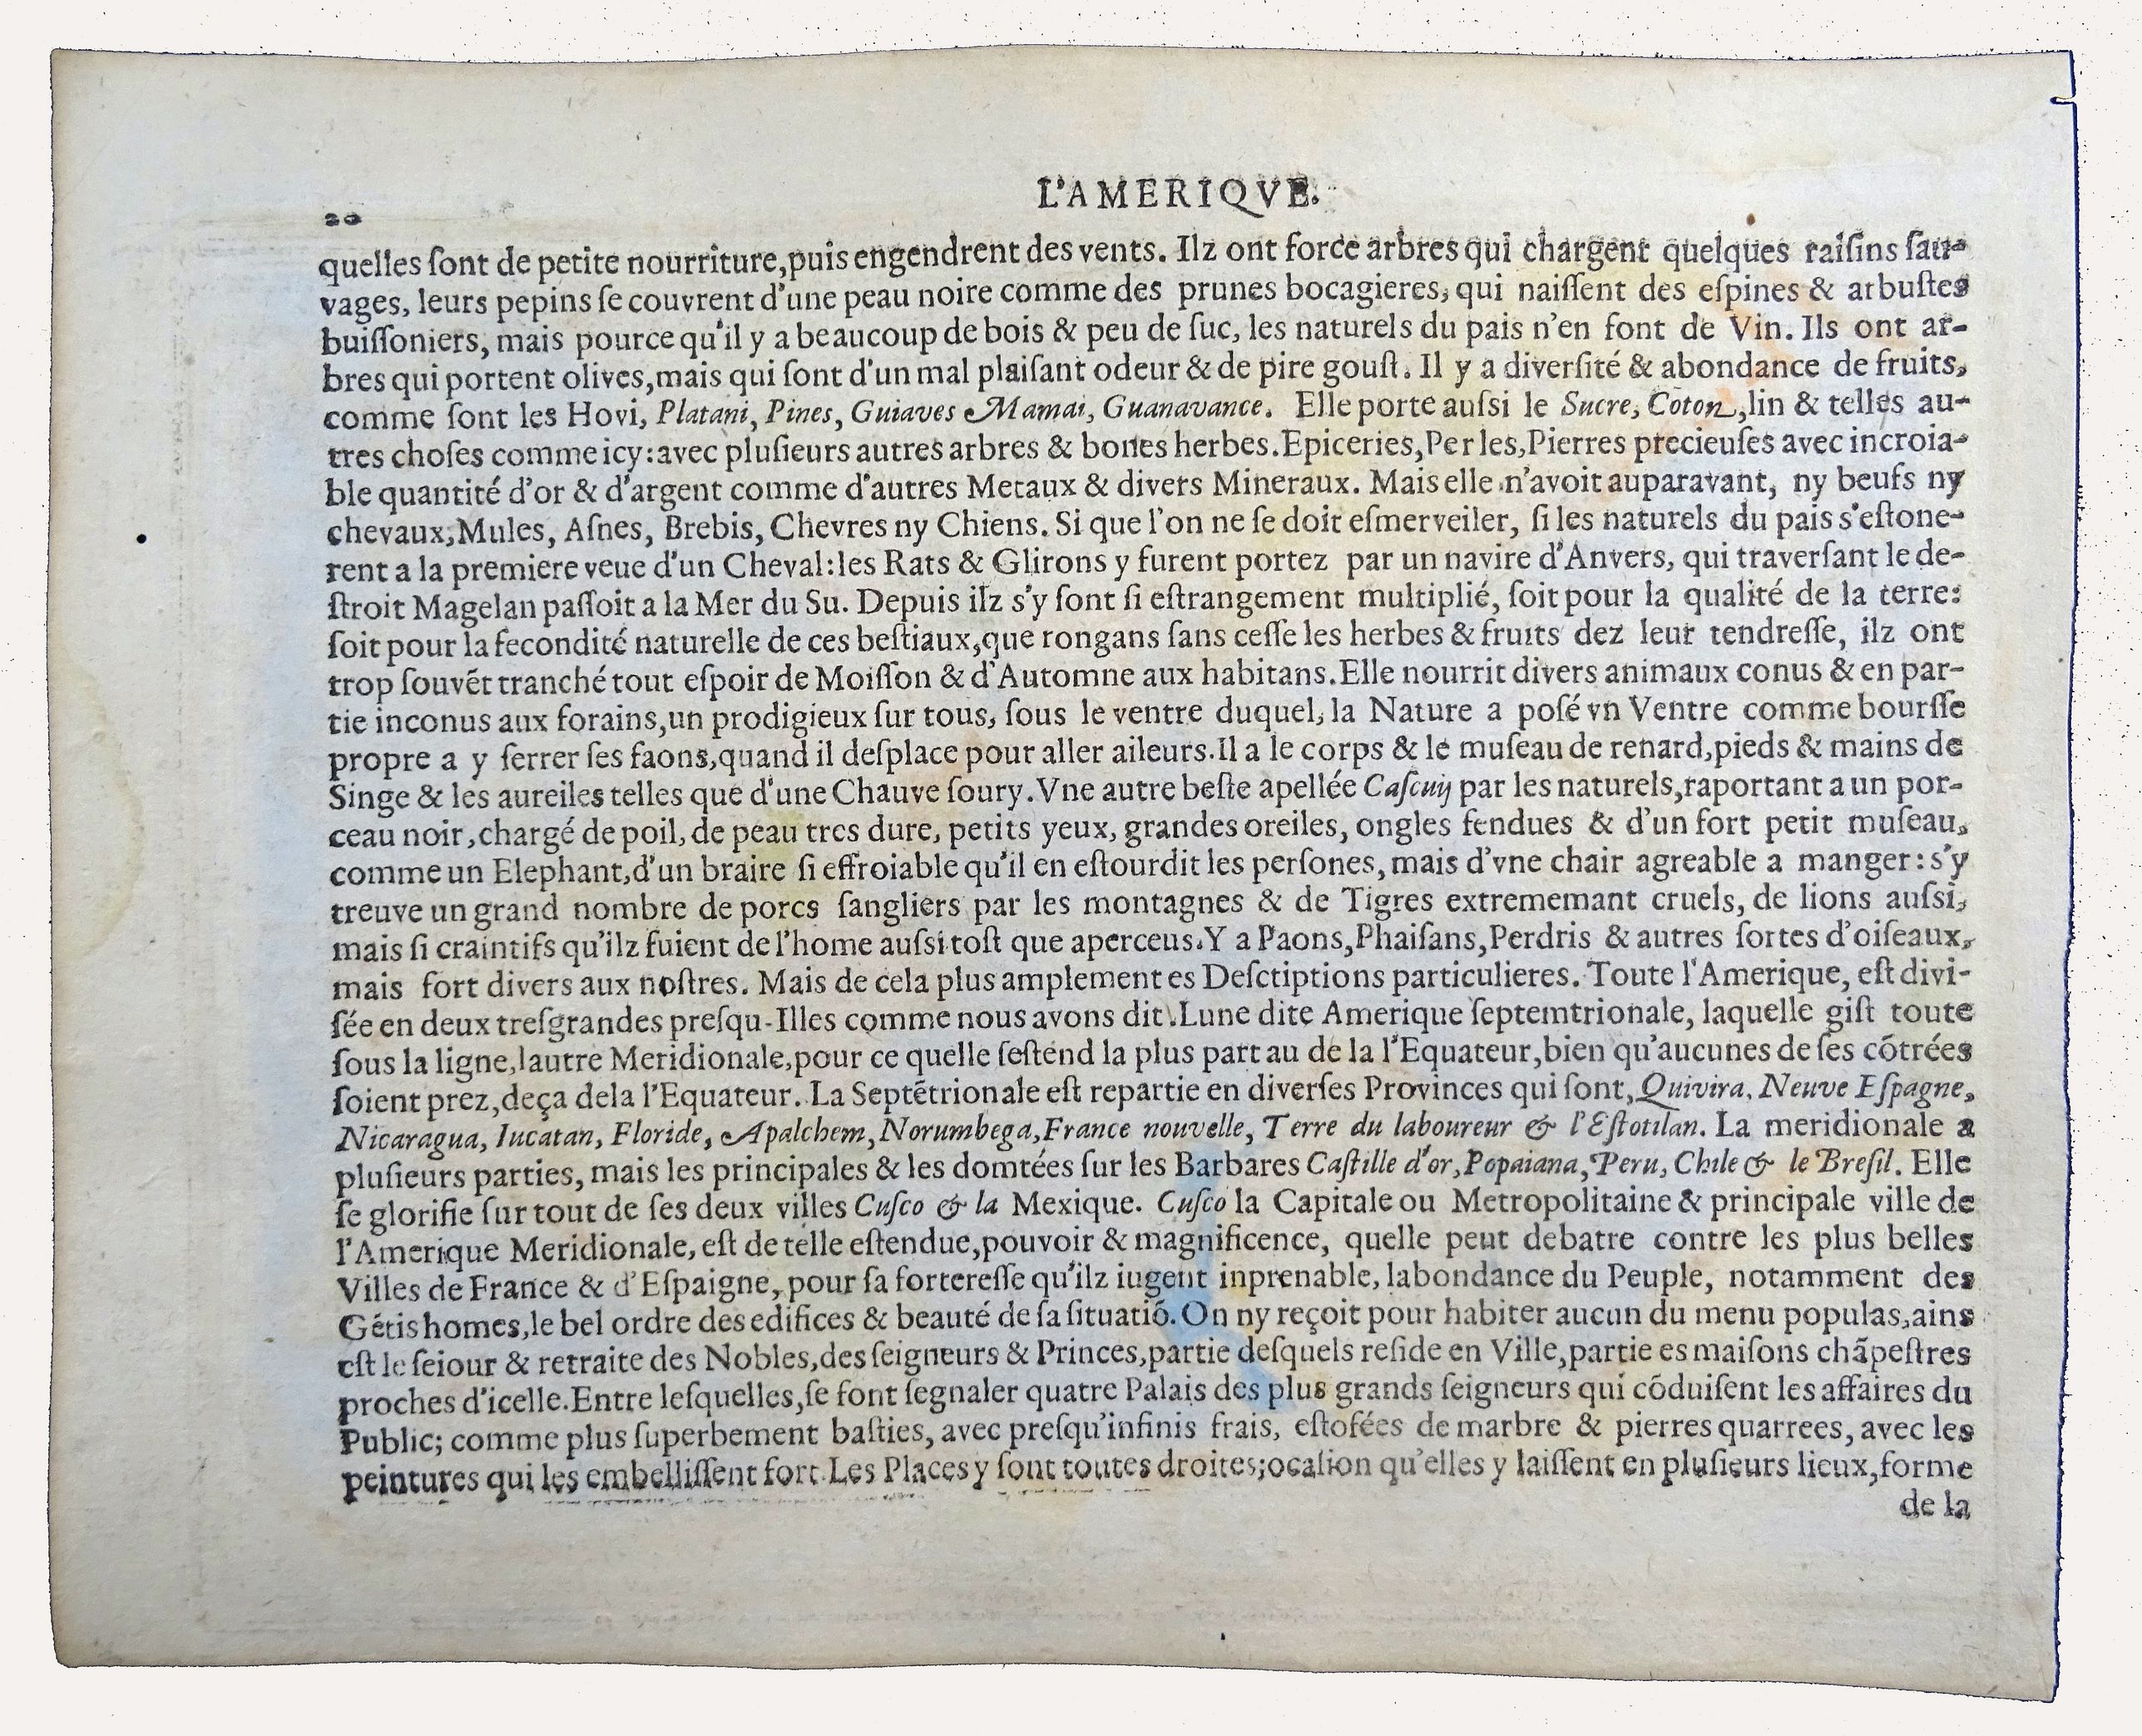 L'AMERIQVE.
20
quelles ſont de petite nourriture,puis engendrent des vents. Ilz ont force arbres qui chargent quelques raiſins ſau-
vages, leurs pepins ſe couvrent d'une peau noire comme des prunes bocagieres, qui naiſſent des eſpines & arbuſtes
buiſſoniers, mais pource qu'il y a beaucoup de bois & peu de ſuc, les naturels du pais n'en font de Vin. Ils ont ar-
bres qui portent olives,mais qui ſont d'un mal plaiſant odeur & de pire gouſt. Il y a diverſité & abondance de fruits,
comme ſont les Hovi, Platani, Pines, Guiaves Mamai, Guanavance. Elle porte auſsi le Sucre, Coton,lin & telles au-
tres choſes comme icy:avec pluſieurs autres arbres & bones herbes.Epiceries,Perles,Pierres precieuſes avec incroia-
ble quantité d'or & d'argent comme d'autres Metaux & divers Mineraux. Mais elle n'avoit auparavant, ny beufs ny
chevaux,Mules, Aſnes, Brebis, Chevres ny Chiens. Si que l'on ne ſe doit eſmerveiler, ſi les naturels du pais s'eſtone-
rent a la premiere veue d'un Cheval:les Rats & Glirons y furent portez par un navire d'Anvers, qui traverſant le de-
ſtroit Magelan paſſoit a la Mer du Su. Depuis ilz s'y ſont ſi eſtrangement multiplié, ſoit pour la qualité de la terre:
ſoit pour la fecondité naturelle de ces beſtiaux,que rongans ſans ceſſe les herbes & fruits dez leur tendreſſe, ilz ont
trop ſouvẽt tranché tout eſpoir de Moiſſon & d'Automne aux habitans.Elle nourrit divers animaux conus & en par-
tie inconus aux forains,un prodigieux ſur tous, ſous le ventre duquel, la Nature a poſé vn Ventre comme bourſſe
propre a y ſerrer ſes faons,quand il deſplace pour aller aileurs.Il a le corps & le muſeau de renard,pieds & mains de
Singe & les aureiles telles que d'une Chauve ſoury.Vne autre beſte apellée Caſcuij par les naturels,raportant a un por-
ceau noir,chargé de poil, de peau tres dure, petits yeux, grandes oreiles, ongles fendues & d'un fort petit muſeau,
comme un Elephant,d'un braire ſi effroiable qu'il en eſtourdit les perſones, mais d'vne chair agreable a manger: s'y
treuve un grand nombre de porcs ſangliers par les montagnes & de Tigres extrememant cruels, de lions auſsi,
mais ſi craintifs qu'ilz fuient de l'home auſsi toſt que aperceus.Y a Paons,Phaiſans,Perdris & autres ſortes d'oiſeaux,
mais fort divers aux noſtres. Mais de cela plus amplement es Deſctiptions particulieres. Toute l'Amerique, eſt divi-
ſée en deux treſgrandes preſqu-Illes comme nous avons dit.Lune dite Amerique ſeptemtrionale, laquelle giſt toute
ſous la ligne,lautre Meridionale,pour ce quelle ſeſtend la plus part au de la l'Equateur,bien qu'aucunes de ſes cõtrées
ſoient prez,deça dela l'Equateur. La Septẽtrionale eſt repartie en diverſes Provinces qui ſont, Quivira, Neuve Eſpagne,
Nicaragua, Iucatan, Floride, Apalchem, Norumbega,France nouvelle, Terre du laboureur & l'Eſtotilan. La meridionale a
pluſieurs parties, mais les principales & les domtées ſur les Barbares Caſtille d'or, Popaiana, Peru, Chile & le Breſil. Elle
ſe glorifie ſur tout de ſes deux villes Cuſco & la Mexique. Cuſco la Capitale ou Metropolitaine & principale ville de
l'Amerique Meridionale, eſt de telle eſtendue,pouvoir & magnificence, quelle peut debatre contre les plus belles
Villes de France & d'Eſpaigne, pour ſa fortereſſe qu'ilz iugent inprenable, labondance du Peuple, notamment des
Gẽtishomes,le bel ordre des edifices & beauté de ſa ſituatiõ.On ny reçoit pour habiter aucun du menu populas,ains
eſt le ſeiour & retraite des Nobles,des ſeigneurs & Princes,partie deſquels reſide en Ville,partie es maiſons chãpeſtres
proches d'icelle.Entre leſquelles,ſe font ſegnaler quatre Palais des plus grands ſeigneurs qui cõduiſent les affaires du
Public; comme plus ſuperbement baſties, avec preſqu'infinis frais, eſtofées de marbre & pierres quarrees, avec les
peintures qui les embelliſſent fort.Les Places y ſont toutes droites;ocaſion qu'elles y laiſſent en pluſieurs lieux,forme
de la